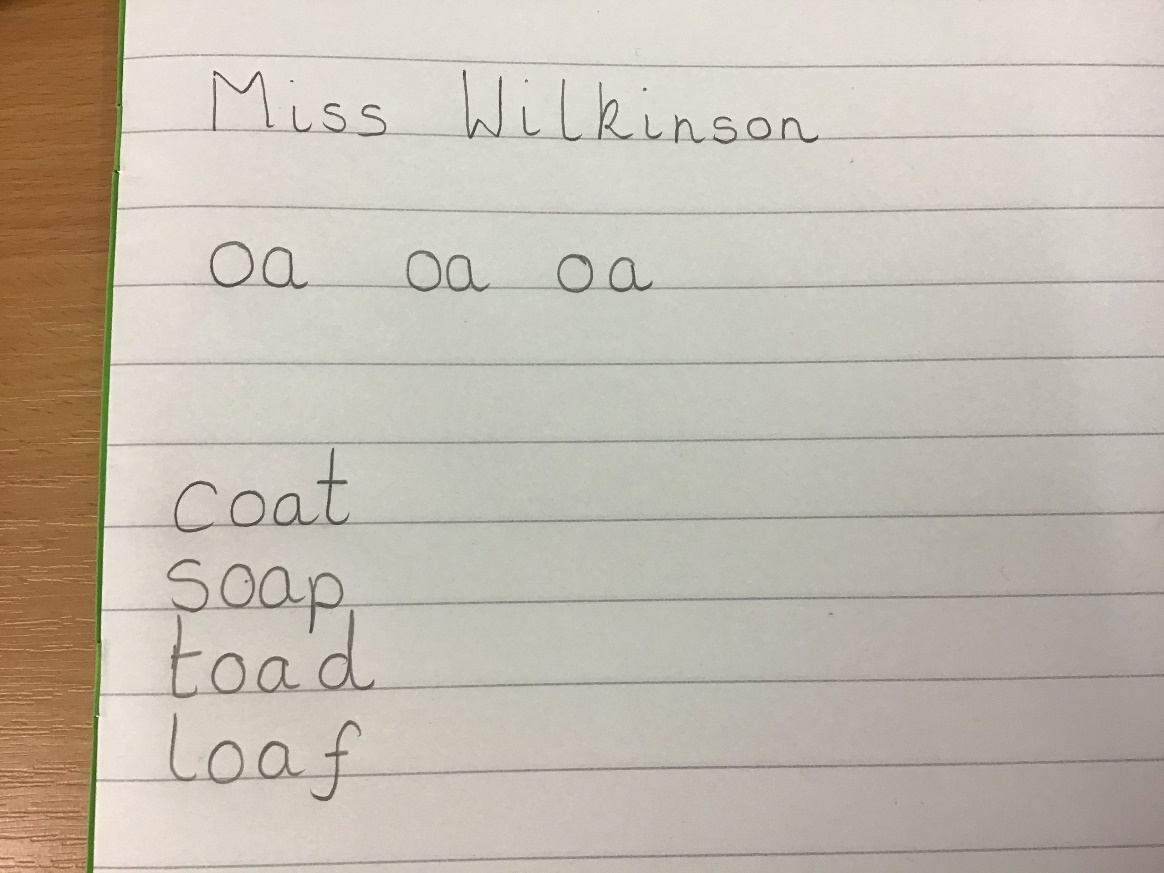 Miss Wilkinson
oa oa oa
coat
soap
toad
loaf